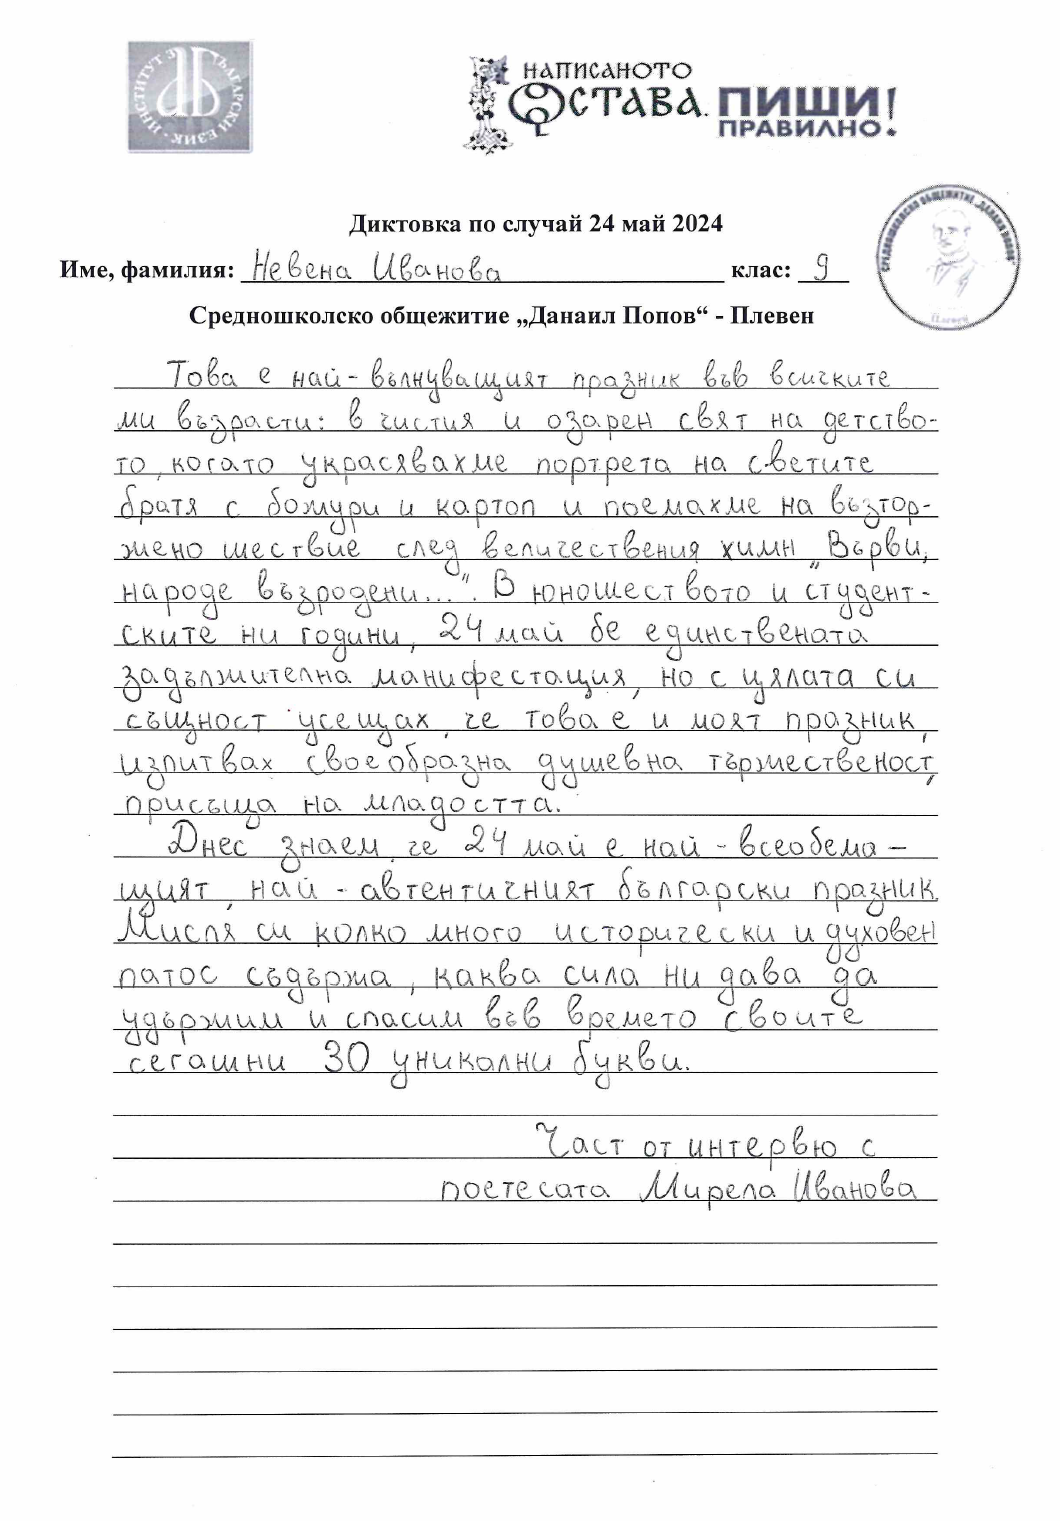 ИНСТИТУТ ЗА БЪЛГАРСКИ ЕЗИК
НАПИСАНОТО
ОСТАВА. ПИШИ
ПРАВИЛНО!
Диктовка по случай 24 май 2024
Име, фамилия: Невена Иванова клас: 9
СРЕДНОШКОЛСКО ОБЩЕЖИТИЕ „ДАНАИЛ ПОПОВ“
Плевен
Средношколско общежитие „Данаил Попов“ - Плевен
Това е най - вълнуващият празник във всичките
ми възрасти: в чистия и озарен свят на детство-
то, когато украсявахме портрета на светите
братя с божури и картоп и поемахме на възтор-
жено шествие след величествения химн „Върви,
народе възродени...". В юношеството и студент-
ските ни години, 24 май бе единствената
задължителна манифестация, но с цялата си
същност усещах, че това е и моят празник,
изпитвах своеобразна душевна тържественост,
присъща на младостта.
Днес знаем, че 24 май е най - всеобема-
щият, най - автентичният български празник.
Мисля си колко много исторически и духовен
патос съдържа, каква сила ни дава да
удържим и спасим във времето своите
сегашни 30 уникални букви.
Част от интервю с
поетесата Мирела Иванова